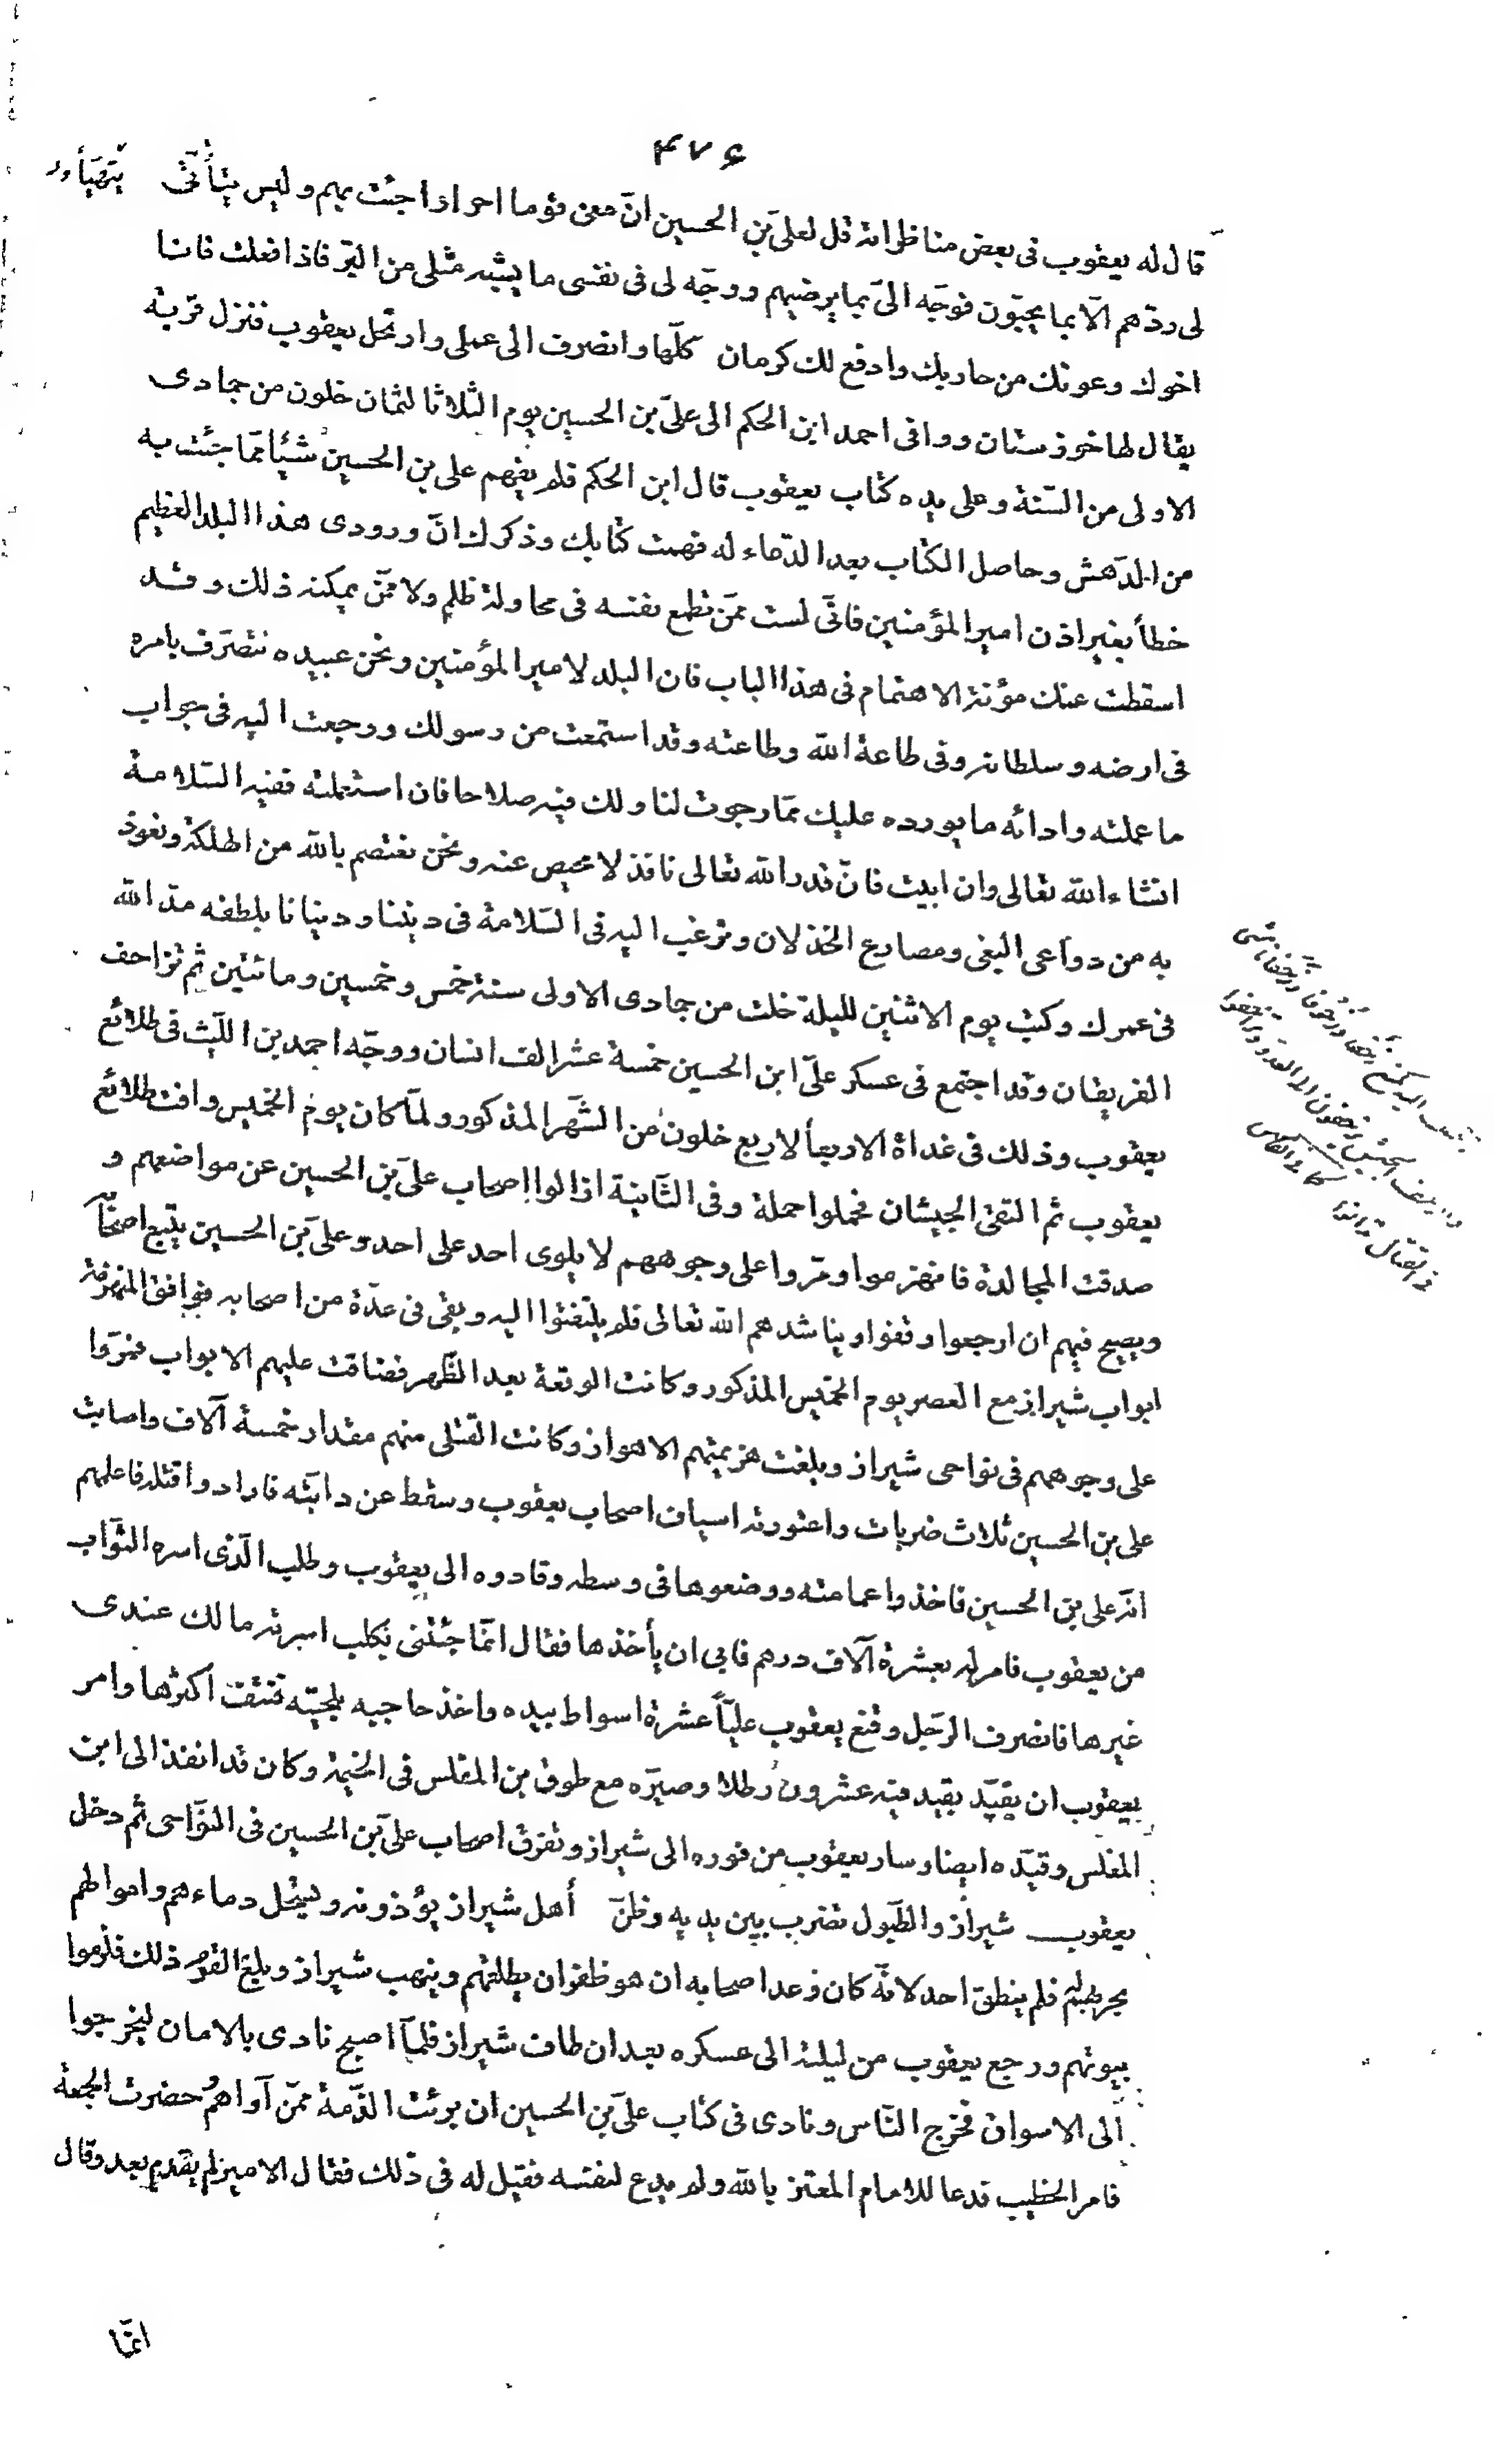 ۴۷۶
قال له يعقوب فى بعض مناظراته قل لعلىّ بن الحسين انّ معى قوما احرارا جئت بهم وليس يتأتّى
يتهيّأ ور
لى ردّهم الّا بما يحبّون فوجّه الىّ بما يرضيهم ووجّه لى فى نفسى ما يشبه مثلى من البرّ فاذا فعلت فانا
اخوك وعونك من حاربك وادفع لك كرمان كلّها وانصرف الى عملى وارتحل يعقوب فنزل قرية
يقال لها خوزستان ووافى احمد ابن الحكم الى علىّ بن الحسين يوم الثلاثا لثمان خلون من جمادى
الاولى من السّنة وعلى يده كتاب يعقوب قال ابن الحكم فلم يفهم على بن الحسين شيئا ممّا جئت به
من الدّهش وحاصل الكتاب بعد الدّعاء له فهمت كتابك وذكرك انّ ورودى هذا البلد العظيم
خطأ بغير اذن امير المؤمنين فانّى لست ممّن تطمع نفسه فى محاولة ظلم ولا ممّن يمكنه ذلك وقد
اسقطت عنك مؤنة الاهتمام فى هذا الباب فان البلد لامير المؤمنين ونحن عبيده نتصرّف بامره
فى ارضه وسلطانه وفى طاعة الله وطاعته وقد استمعت من رسولك ورجعت اليه فى جواب
ما علمته وادائه ما يورده عليك ممّا رجوت لنا ولك فيه صلاحا فان استعملته ففيه السّلامة
انشاء الله تعالى وان ابيت فانّ قدر الله تعالى نافذ لا محيص عنه ونحن نعتصم بالله من الهلكة ونعوذ
به من دواعى البغى ومصارع الخذلان ونرغب اليه فى السّلامة فى ديننا ودنيانا بلطفه مدّ الله
فى عمرك وكتب يوم الاثنين لليلة خلت من جمادى الاولى سنة خمس وخمسين ومائتين ثم تزاحف
الفريقان وقد اجتمع فى عسكر علىّ ابن الحسين خمسة عشر الف انسان ووجّه احمد بن اللّيث فى طلائع
يعقوب وذلك فى غداة الاربعأ لاربع خلون من الشّهر المذكور ولمّا كان يوم الخميس وافت طلائع
يعقوب ثم التقى الجيشان فحملوا حملة وفى الثّانية ازالوا اصحاب علىّ بن الحسين عن مواضعهم و
صدقت المجالدة فانهزموا ومرّوا على وجوههم لا يلوى احد على احد وعلىّ بن الحسين يتبع اصحابه
ويصيح فيهم ان ارجعوا وقفوا ويناشدهم الله تعالى فلم يلتفتوا اليه وبقى فى عدّة من اصحابه فوافق المنهزمة
ابواب شيراز مع العصر يوم الخميس المذكور وكانت الوقعة بعد الظّهر فضاقت عليهم الابواب فمرّوا
على وجوههم فى نواحى شيراز وبلغت هزيمتهم الاهواز وكانت القتلى منهم مقدار خمسة آلاف واصابت
على بن الحسين ثلاث ضربات واعتورته اسياف اصحاب يعقوب وسقط عن دابّته فارادوا قتله فاعلمهم
انّه على بن الحسين فاخذوا عمامته ووضعوها فى وسطه وقادوه الى يعقوب وطلب الّذى اسره الثّواب
من يعقوب فامر له بعشرة آلاف درهم فابى ان يأخذها فقال انّما جئتنى بكلب اسرته مالك عندى
غيرها فانصرف الرّجل وقنع يعقوب عليّاً عشرة اسواط بيده واخذ حاجبه بلحيته فنتف اكثرها وامر
يعقوب ان يقيّد بقيد فيه عشرون رطلا وصيّره مع طوق بن المغلس فى الخيمة وكان قد انفذ الى ابن
المغلس وقيّده ايضا وسار يعقوب من فوره الى شيراز وتفرق اصحاب علىّ بن الحسين فى النّواحى ثم دخل
يعقوب شيراز والطّبول تضرب بين يديه وظنّ أهل شيراز يؤذونه ويستحلّ دماءهم واموالهم
بحربهم له فلم ينطق احد لانّه كان وعد اصحابه ان هو ظفر ان يطلقهم وينهب شيراز وبلغ القوم ذلك فلزموا
بيوتهم ورجع يعقوب من ليلته الى عسكره بعد ان طاف شيراز فلمّا اصبح نادى بالامان ليخرجوا
الى الاسواق فخرج النّاس ونادى فى كتاب علىّ بن الحسين ان برئت الذّمة ممّن آواهم حضرت الجمعة
فامر الخطيب فدعا للامام المعتز بالله ولم يدع لنفسه فقيل له فى ذلك فقال الامير لم يقدم بعد وقال
انّما